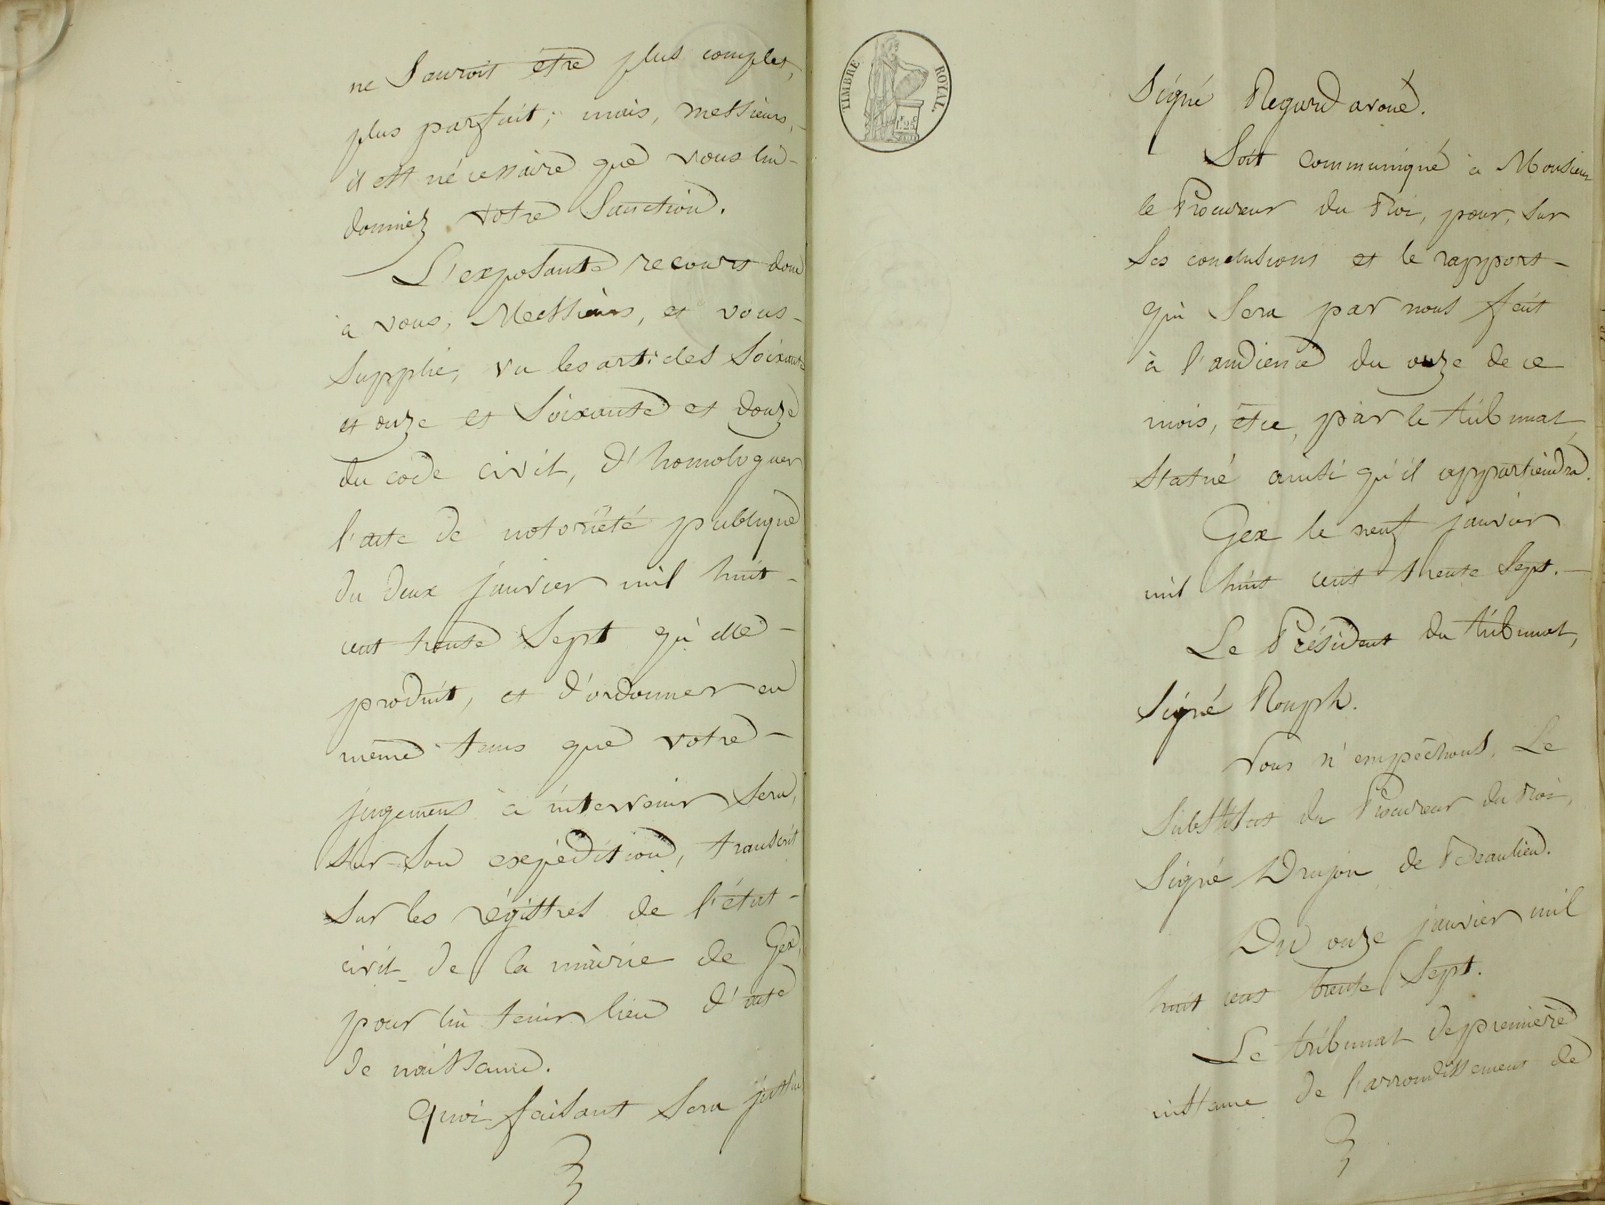 ne Sauroit être plus complet,
plus parfait; mais, messieurs, -
il est nécessaire que vous lui -
donniez votre Sanction.
L'exposante recourt donc
à vous, Messieurs, et vous -
Supplie, vu les articles Soixante
et onze et Soixante et douze
du code civil, d'homologuer
l'acte de notoriété publique
du deux janvier mil huit -
cent trente Sept qu'elle -
produit, et d'ordonner en
même tems que votre -
jugement à intervenir Sera,
Sur Son expédition, transcrit
Sur les régistres de l'état -
civil de la mairie de Gex,
pour lui tenir lieu d'acte
de naissance.
Quoi faisant Sera justice
TIMBRE ROYAL.
Signé Regard avoué.
Soit communiqué à Monsieur
le Procureur du Roi, pour, Sur
Ses conclusions et le rapport -
qui Sera par nous fait
à l'audience du onze de ce
mois, être, par le tribunal,
Statué ainsi qu'il appartiendra.
Gex le neuf janvier
mil huit cent trente Sept. -
Le Président du tribunal,
Signé Rouph.
Nous n'empêchons, Le
Substitut du Procureur du Roi,
Signé Drujon de Beaulieu.
Du onze janvier mil
huit cent trente Sept.
Le tribunal de première
instance de l'arrondissement de